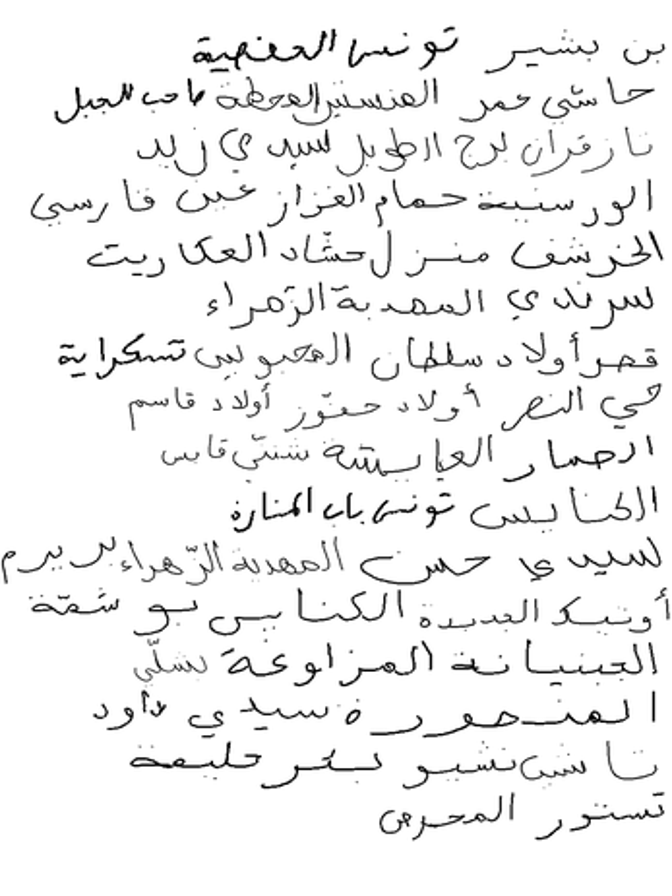 بن بشير تونس الحفصية
حاشي عمر المنستير المحطة صاحب الجبل
تازغران برج الطويل سيدي زيد
الورسنية حمام الغزاز عين فارسي
الخرشف منزل حشّاد العكاريت
سرندي المهدية الزهراء
قصر أولاد سلطان المحبوبين تسكراية
حي النصر أولاد حفّوز أولاد قاسم
ارحمار العيايشة شنني قابس
الكنايس تونس باب المنارة
سيدي حسن المهدية الزّهراء بريرم
أوتيك الجديدة الكنايس بوشمّة
الجبنيانة المزاوغة بشلّي
المنصورة سيدي داود
تاشب نشيو بئر خليفة
تستور المحرص